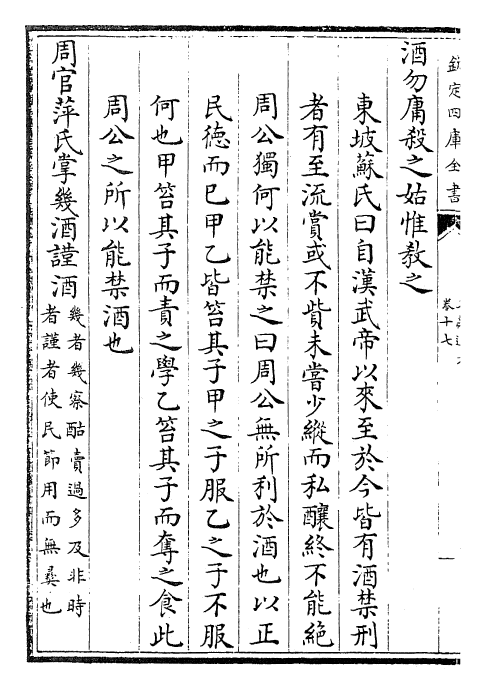 欽定四庫全書
卷十七
一
酒勿庸殺之姑惟教之
東坡蘇氏曰自漢武帝以來至於今皆有酒禁刑
者有至流賞或不貲未嘗少縱而私釀終不能絶
周公獨何以能禁之曰周公無所利於酒也以正
民德而已甲乙皆笞其子甲之子服乙之子不服
何也甲笞其子而責之學乙笞其子而奪之食此
周公之所以能禁酒也
周官萍氏掌幾酒謹酒幾者幾察酤賣過多及非時
者謹者使民節用而無彝也